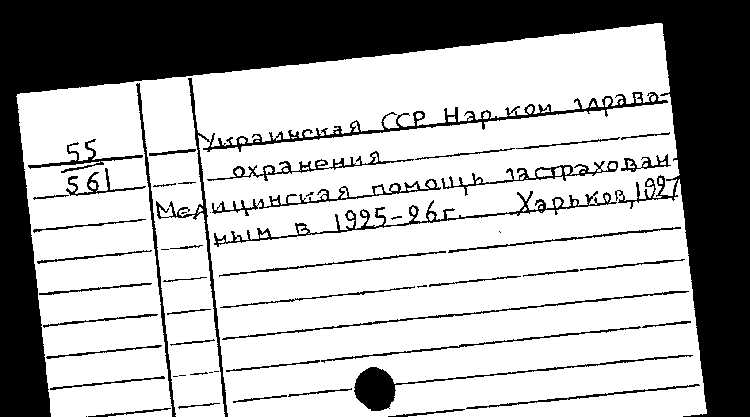 55
561
Украинская ССР. Нар.ком здраво-
охранения
Медицинская помощь застрахован-
ным в 1925-26г. Харьков, 1927